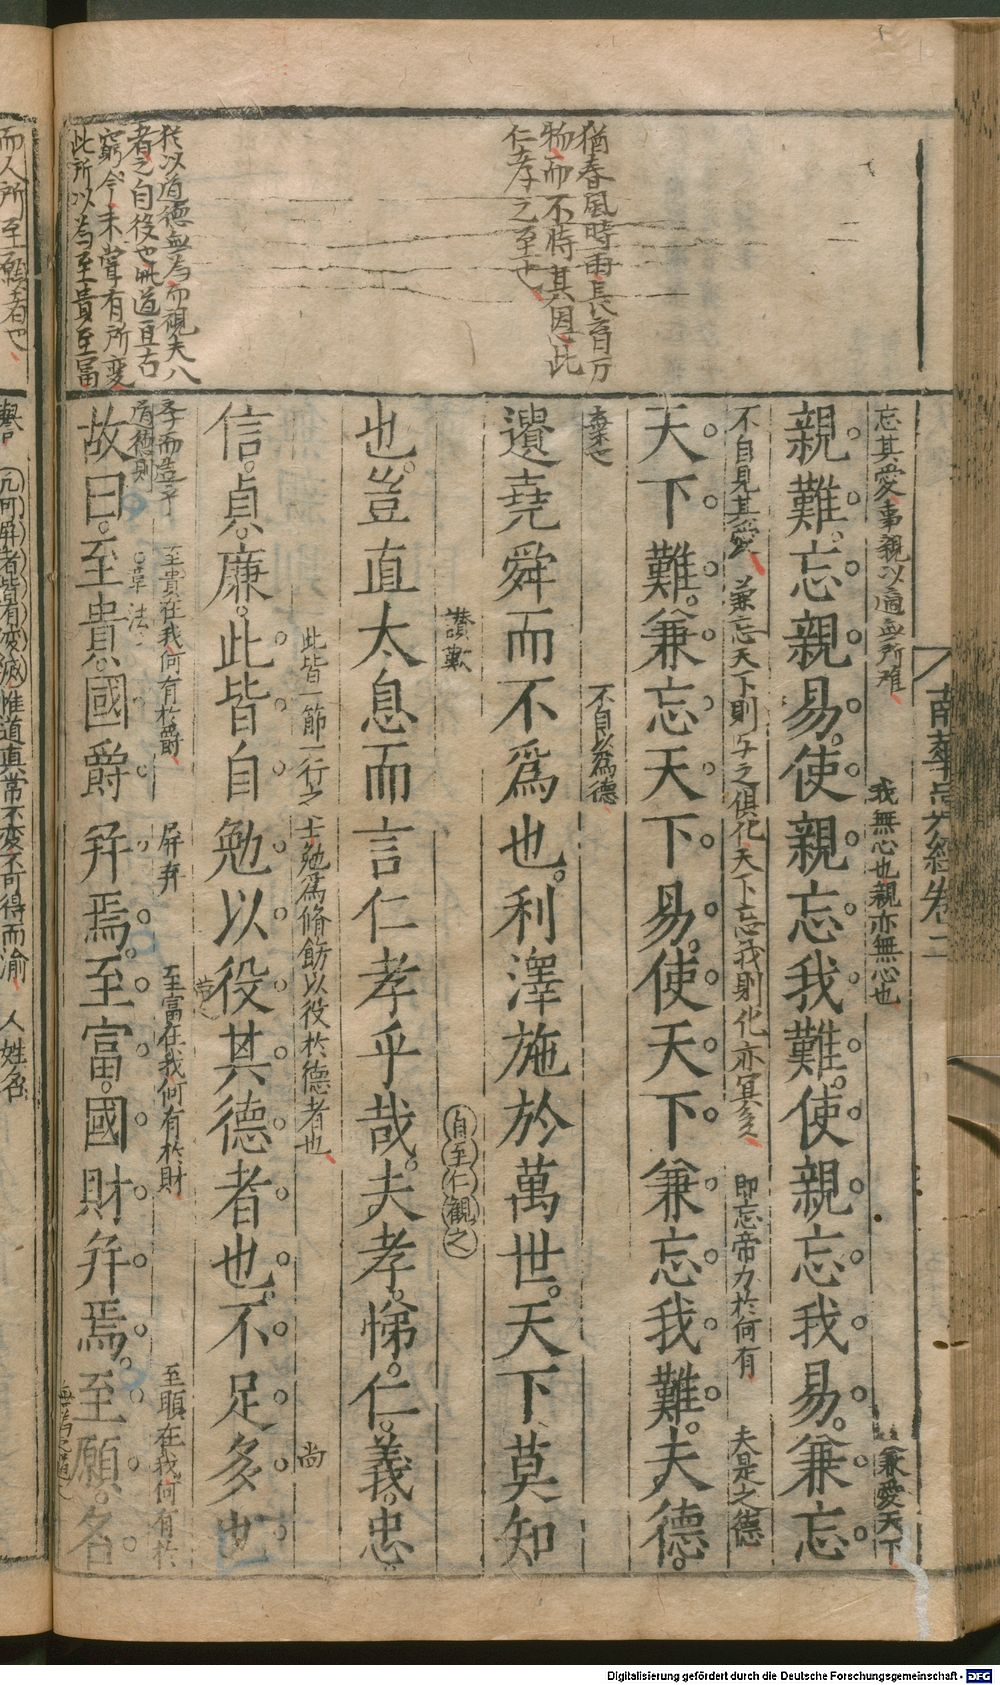 南華真經卷二
忘其愛事親以適無所難
我無心也親亦無心也
兼愛天下
親難。忘親易。使親忘我難。使親忘我易。兼忘
不自見其愛
兼忘天下則与之俱化天下忘我則化亦冥矣
即忘帝力於何有
夫是之德
天下難。兼忘天下易。使天下兼忘我難。夫德。
棄也
不自以為德
遺堯舜而不爲也。利澤施於萬世。天下莫知
讃歎
自至仁観之
也。豈直太息而言仁孝乎哉。夫孝。悌。仁。義。忠。
此皆一節一行之士勉爲脩飭以役於德者也
尚
信。貞。廉。此皆自勉以役其德者也。不足多也
至貴在我何有於爵
屏弃
至富在我何有於財
至願在我何有於
章法
故曰。至貴。國爵幷焉。至富。國財幷焉。至願。名
猶春風時雨長育万
物而不恃其恩此
仁孝之至也
於以道德無為而視夫八
者之自役也此道亘古
窮今未嘗有所変
此所以為至貴至富
而人所至願者也
譽
凡可屏者皆有変滅惟道真常不変不可得而渝
人姓名
Digitalisierung gefördert durch die Deutsche Forschungsgemeinschaft - DFG